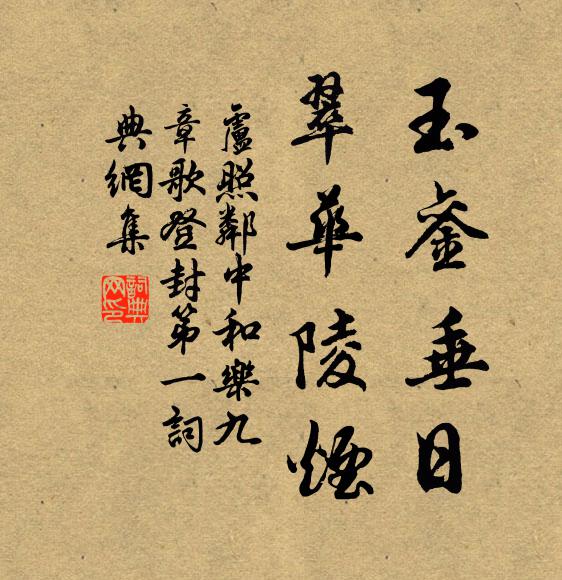 玉銮垂日
翠華陵煙
盧照鄰中和樂九
章歌登封第一詞
典網集
詞典
网印